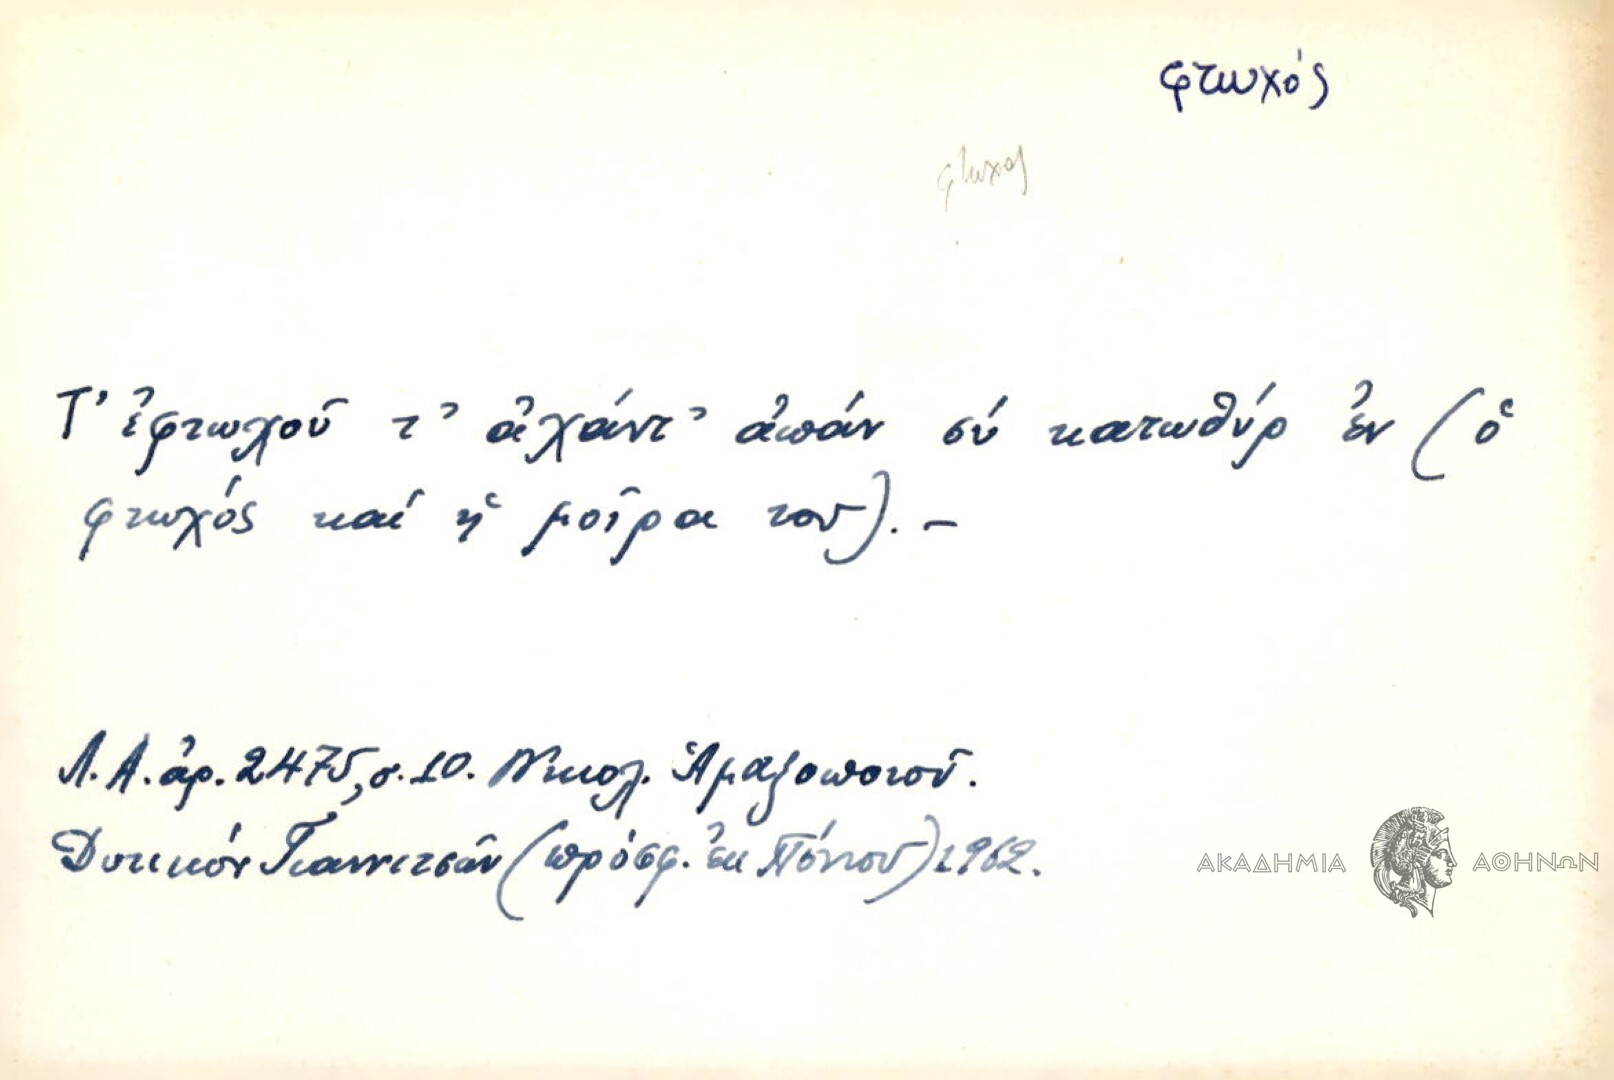 φτωχός
φτωχός
Τ' ἐφτωχοῦ τ' ἀχάντ' ἀπάν σύ κατωθύρ ἐν (ὁ
φτωχός καί ἡ μοῖρα του). -
Λ.Α. ἀρ. 2475, σ. 10. Νικολ. Ἁμαξοποιοῦ.
Δυτικόν Γιαννιτσῶν (πρόσφ. ἐκ Πόντου) 1962.
ΑΚΑΔΗΜΙΑ ΑΘΗΝΩΝ